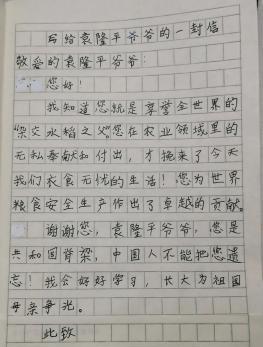 写给袁隆平爷爷的一封信
敬爱的袁隆平爷爷：
您好！
我知道您就是享誉全世界的
“杂交水稻之父”。您在农业领域里的
无私奉献和付出，才换来了今天
我们衣食无忧的生活！您为世界
粮食安全生产作出了卓越的贡献。
谢谢您，袁隆平爷爷，您是
共和国脊梁，中国人不能把您遗
忘！我会好好学习，长大为祖国
母亲争光。
此致